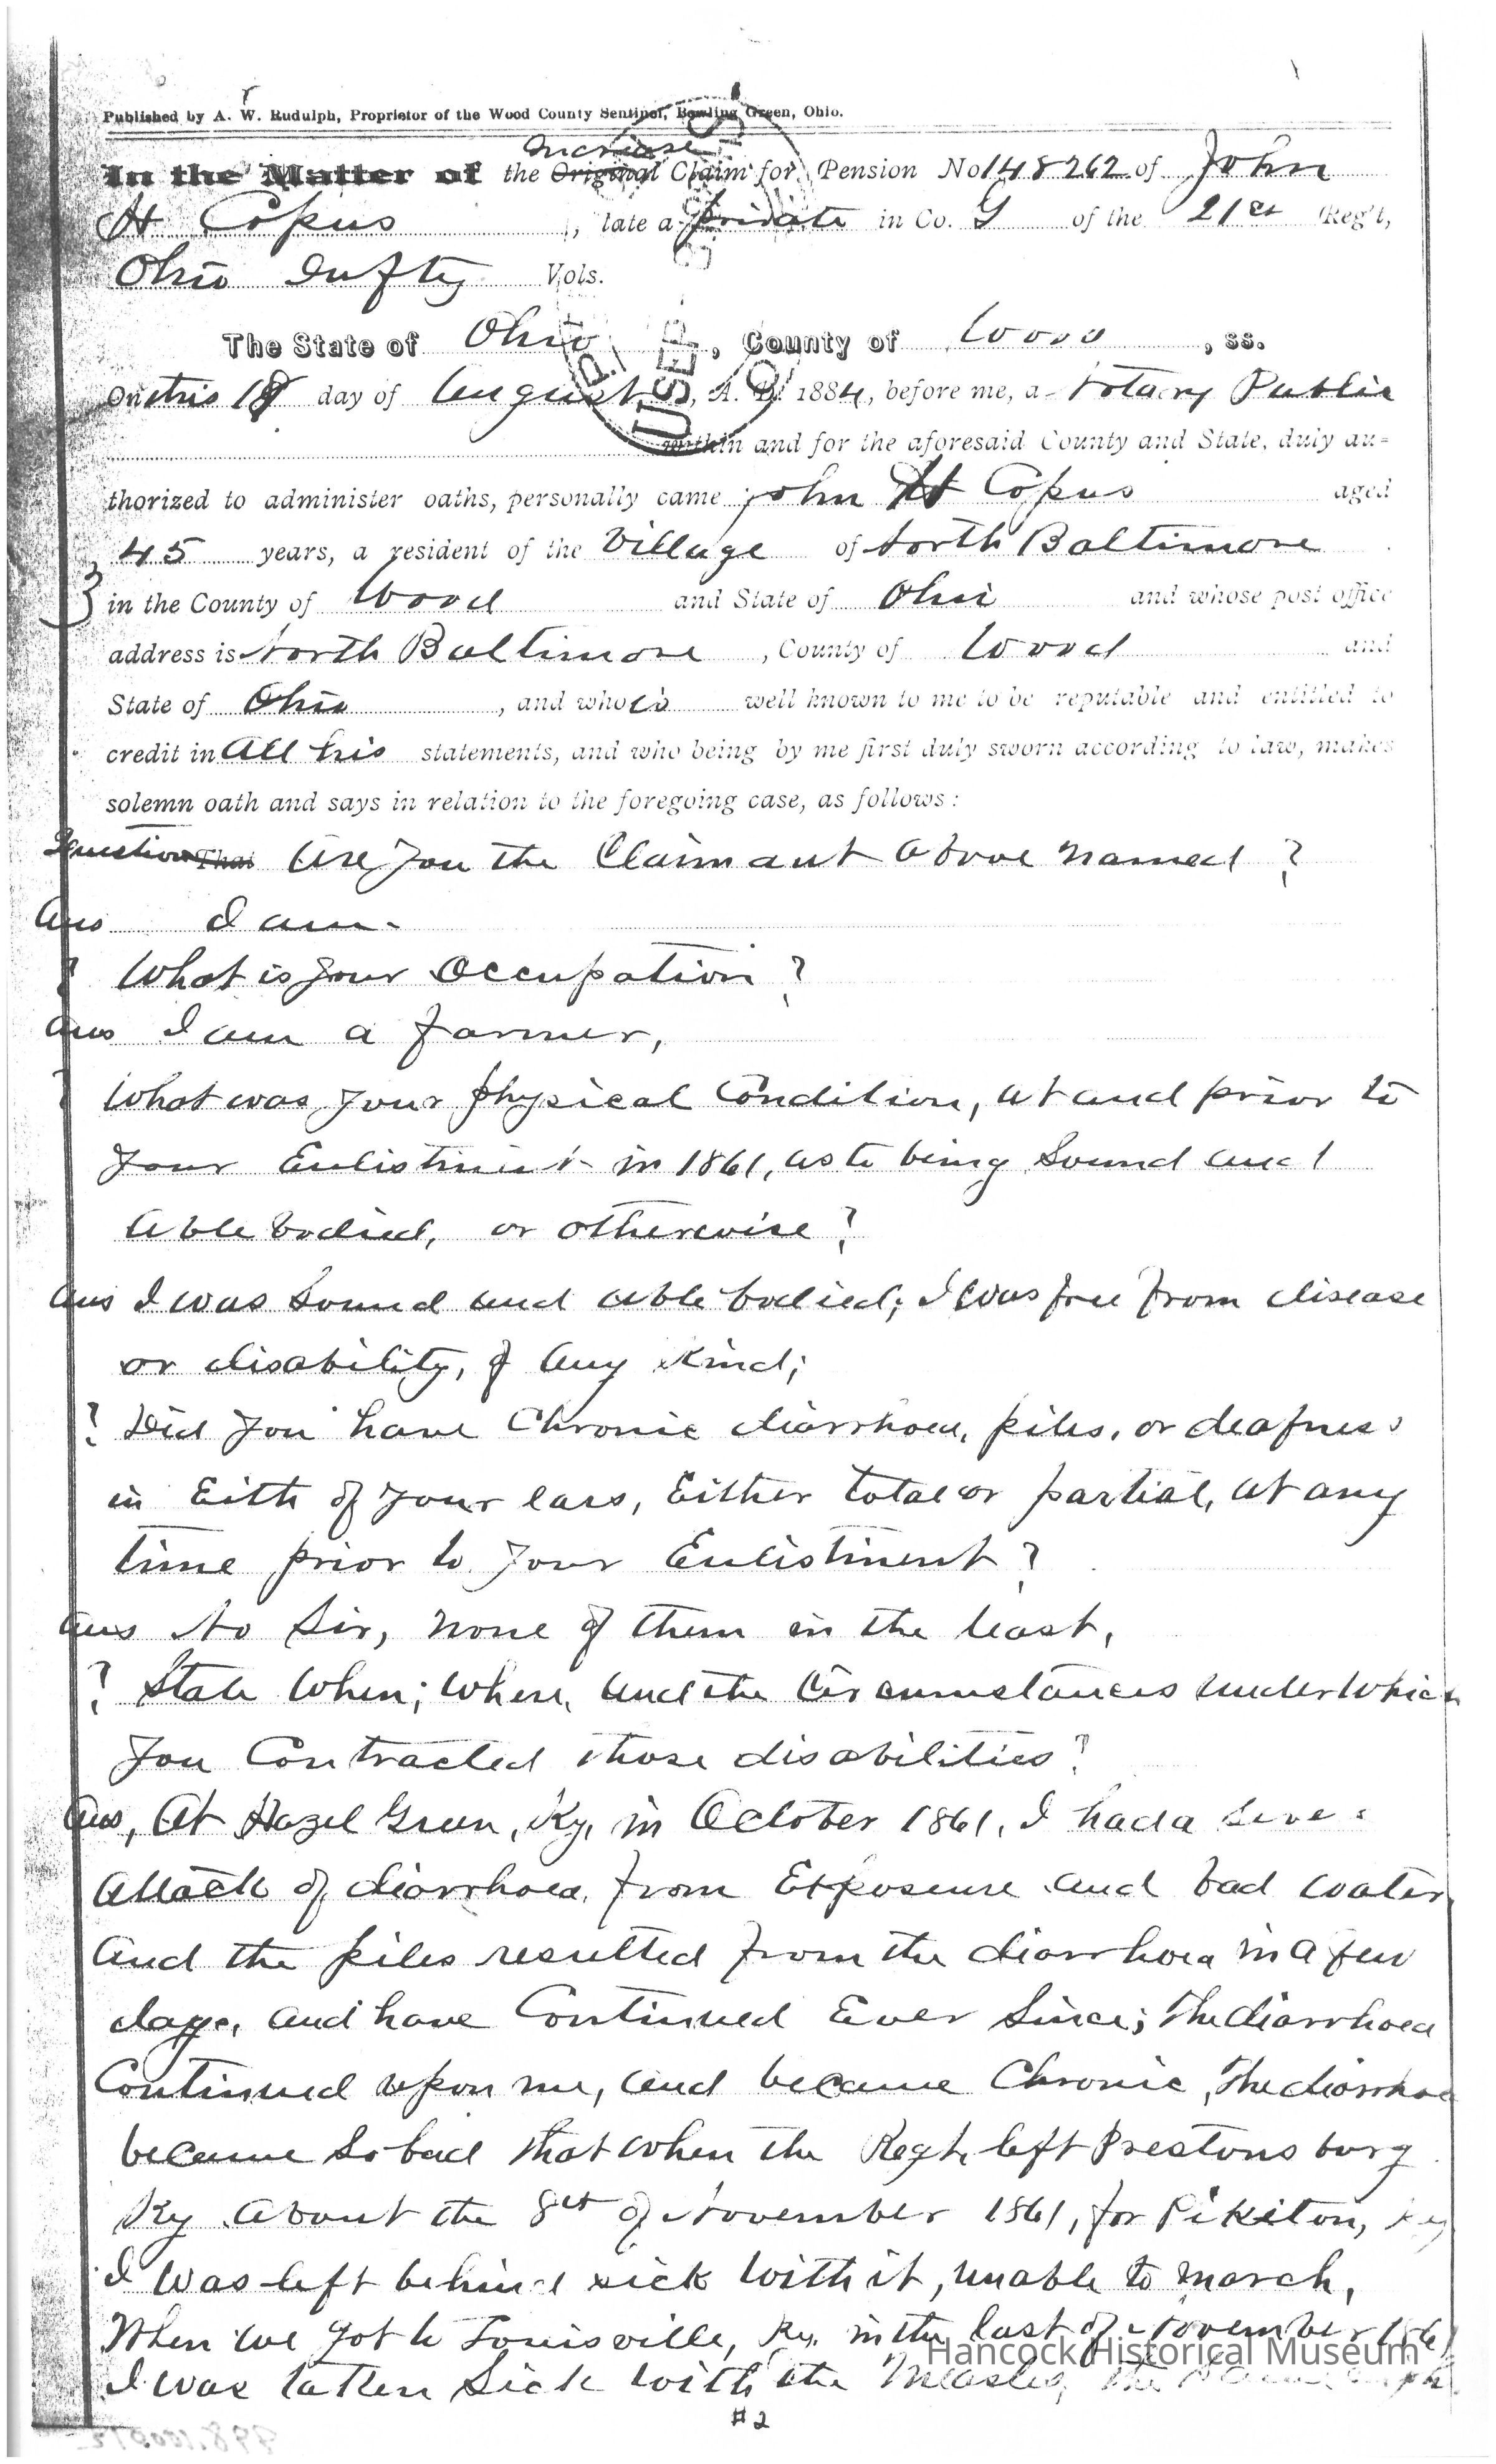 Published by A. W. Rudulph, Proprietor of the Wood County Sentinel, Bowling Green, Ohio.
Increase
In the Matter of the Original Claim for Pension No 148262 of John
H Copus, late a private in Co. G of the 21st Reg't,
Ohio Infty Vols.
The State of Ohio, County of Wood, ss.
On this 18 day of August, A. D. 1884, before me, a Notary Public
within and for the aforesaid County and State, duly au-
thorized to administer oaths, personally came John H Copus aged
45 years, a resident of the Village of North Baltimore
in the County of Wood and State of Ohio and whose post office
address is North Baltimore, County of Wood and
State of Ohio, and who is well known to me to be reputable and entitled to
credit in all his statements, and who being by me first duly sworn according to law, makes
solemn oath and says in relation to the foregoing case, as follows:
Question That Are you the Claimant above named?
Ans I am.
? What is your Occupation?
Ans I am a farmer,
? What was your physical Condition, at and prior to
your Enlistment in 1861, as to being Sound and
able bodied, or otherwise?
Ans I was Sound and able bodied; I was free from disease
or disability, of any kind;
? Did you have Chronic diarrhoea, piles, or deafness
in Eith of your ears, Either total or partial, at any
time prior to your Enlistment?
Ans No Sir, none of them in the least,
? State When; Where, and the Circumstances under which
you Contracted those disabilities?
Ans, At Hazel Green, Ky, in October 1861, I had a
attack of diarrhoea, from Exposure and bad water
and the piles resulted from the diarrhoea in a few
days, and have Continued Ever Since; the diarrhoea
Continued upon me, and became Chronic, the diarrhoea
became So bad that when the Regt, left Prestonsburg
Ky about the 8th of November 1861, for Pikiton, Ky
I was left behind sick with it, unable to march,
When we got to Louisville, Ky. in the last of November 1861
I was taken Sick with the Measles, the
#2
U.S. PE
SEP
Hancock Historical Museum